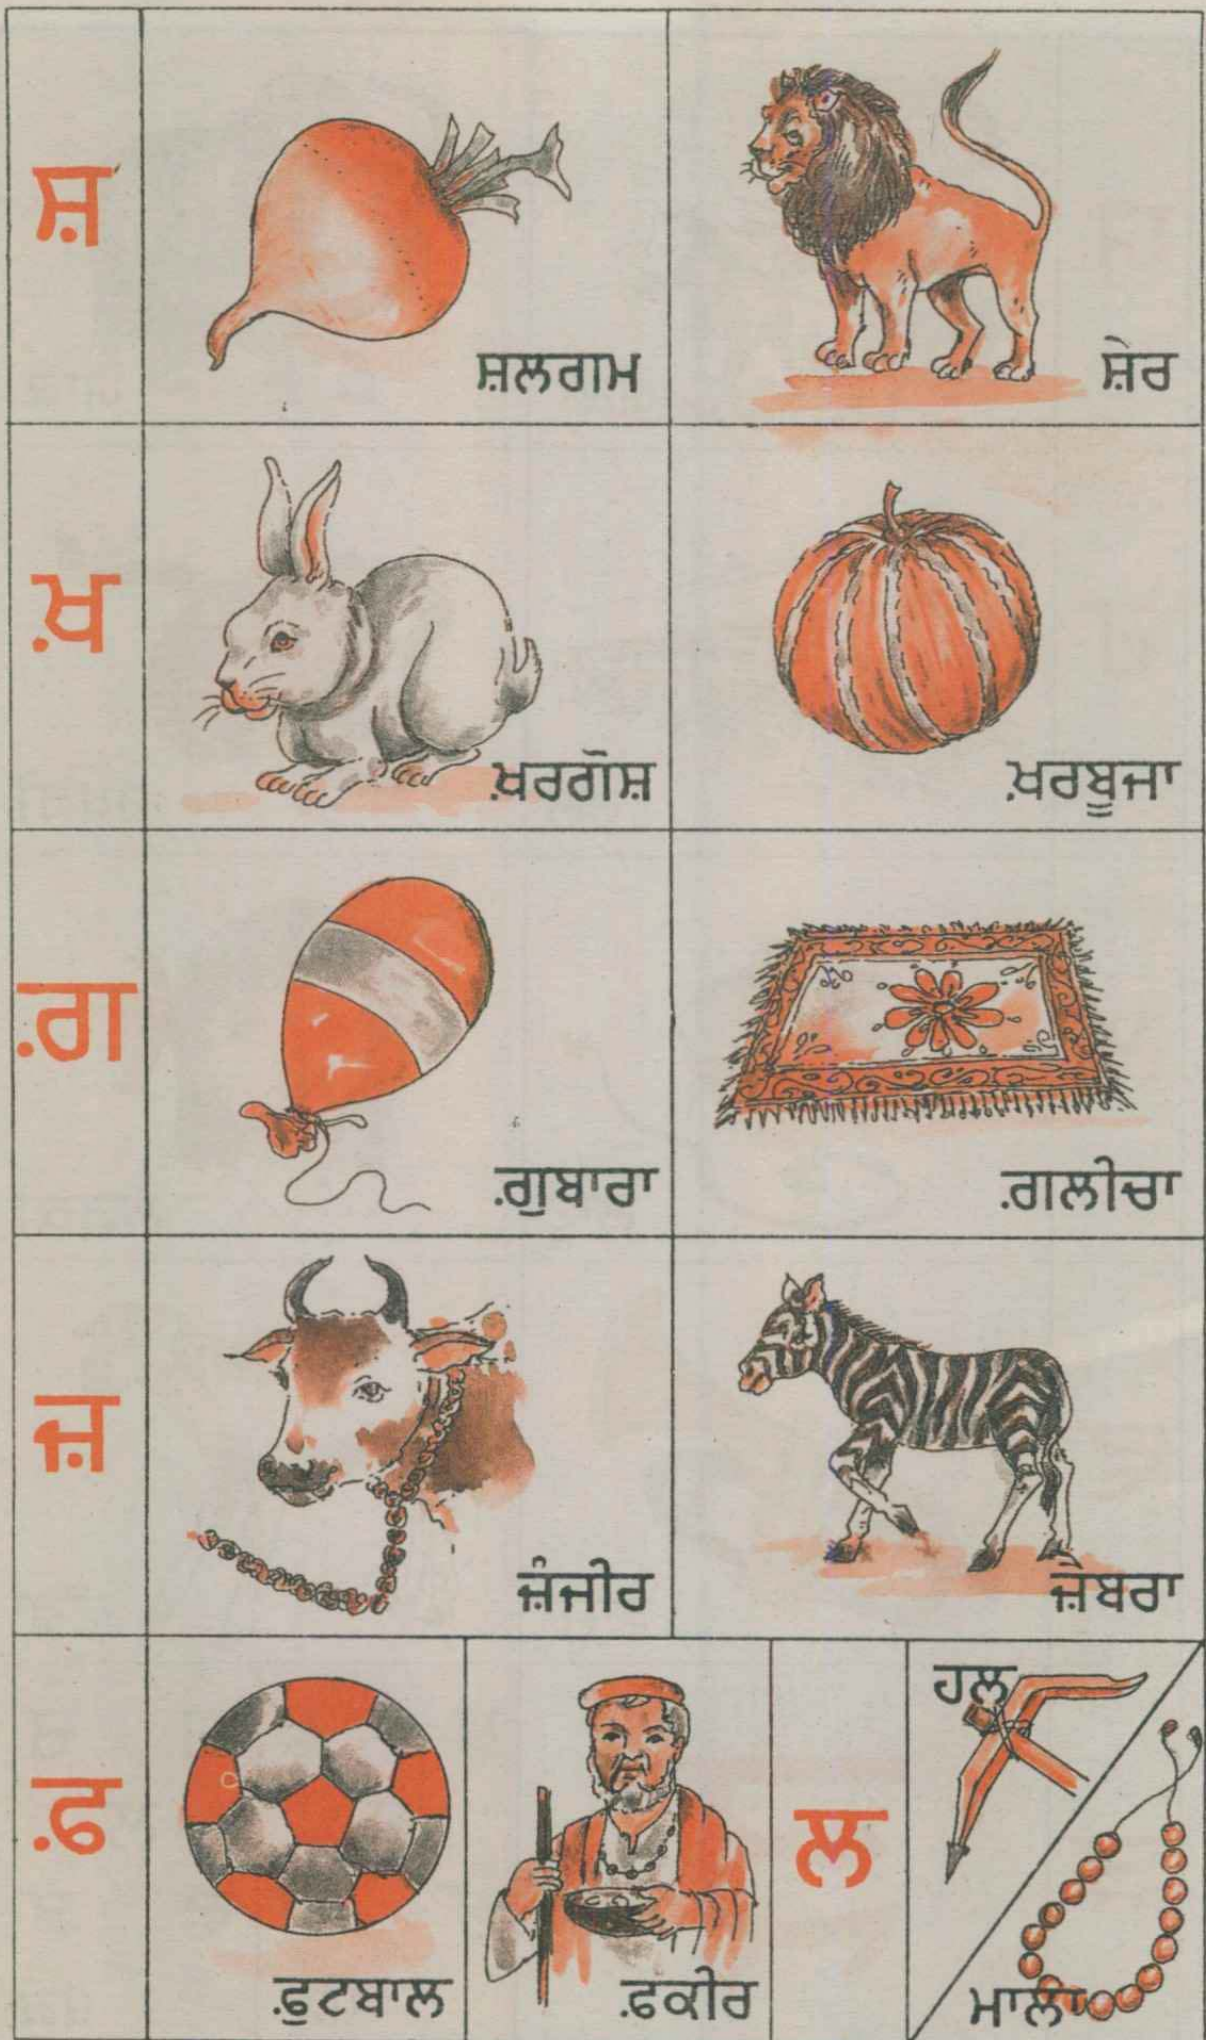 ਸ਼
ਸ਼ਲਗਮ
ਸ਼ੇਰ
ਖ਼
ਖ਼ਰਗੋਸ਼
ਖ਼ਰਬੂਜਾ
ਗ਼
ਗ਼ੁਬਾਰਾ
ਗ਼ਲੀਚਾ
ਜ਼
ਜ਼ੰਜੀਰ
ਜ਼ੇਬਰਾ
ਫ਼
ਫ਼ੁਟਬਾਲ
ਫ਼ਕੀਰ
ਲ
ਹਲ
ਮਾਲਾ